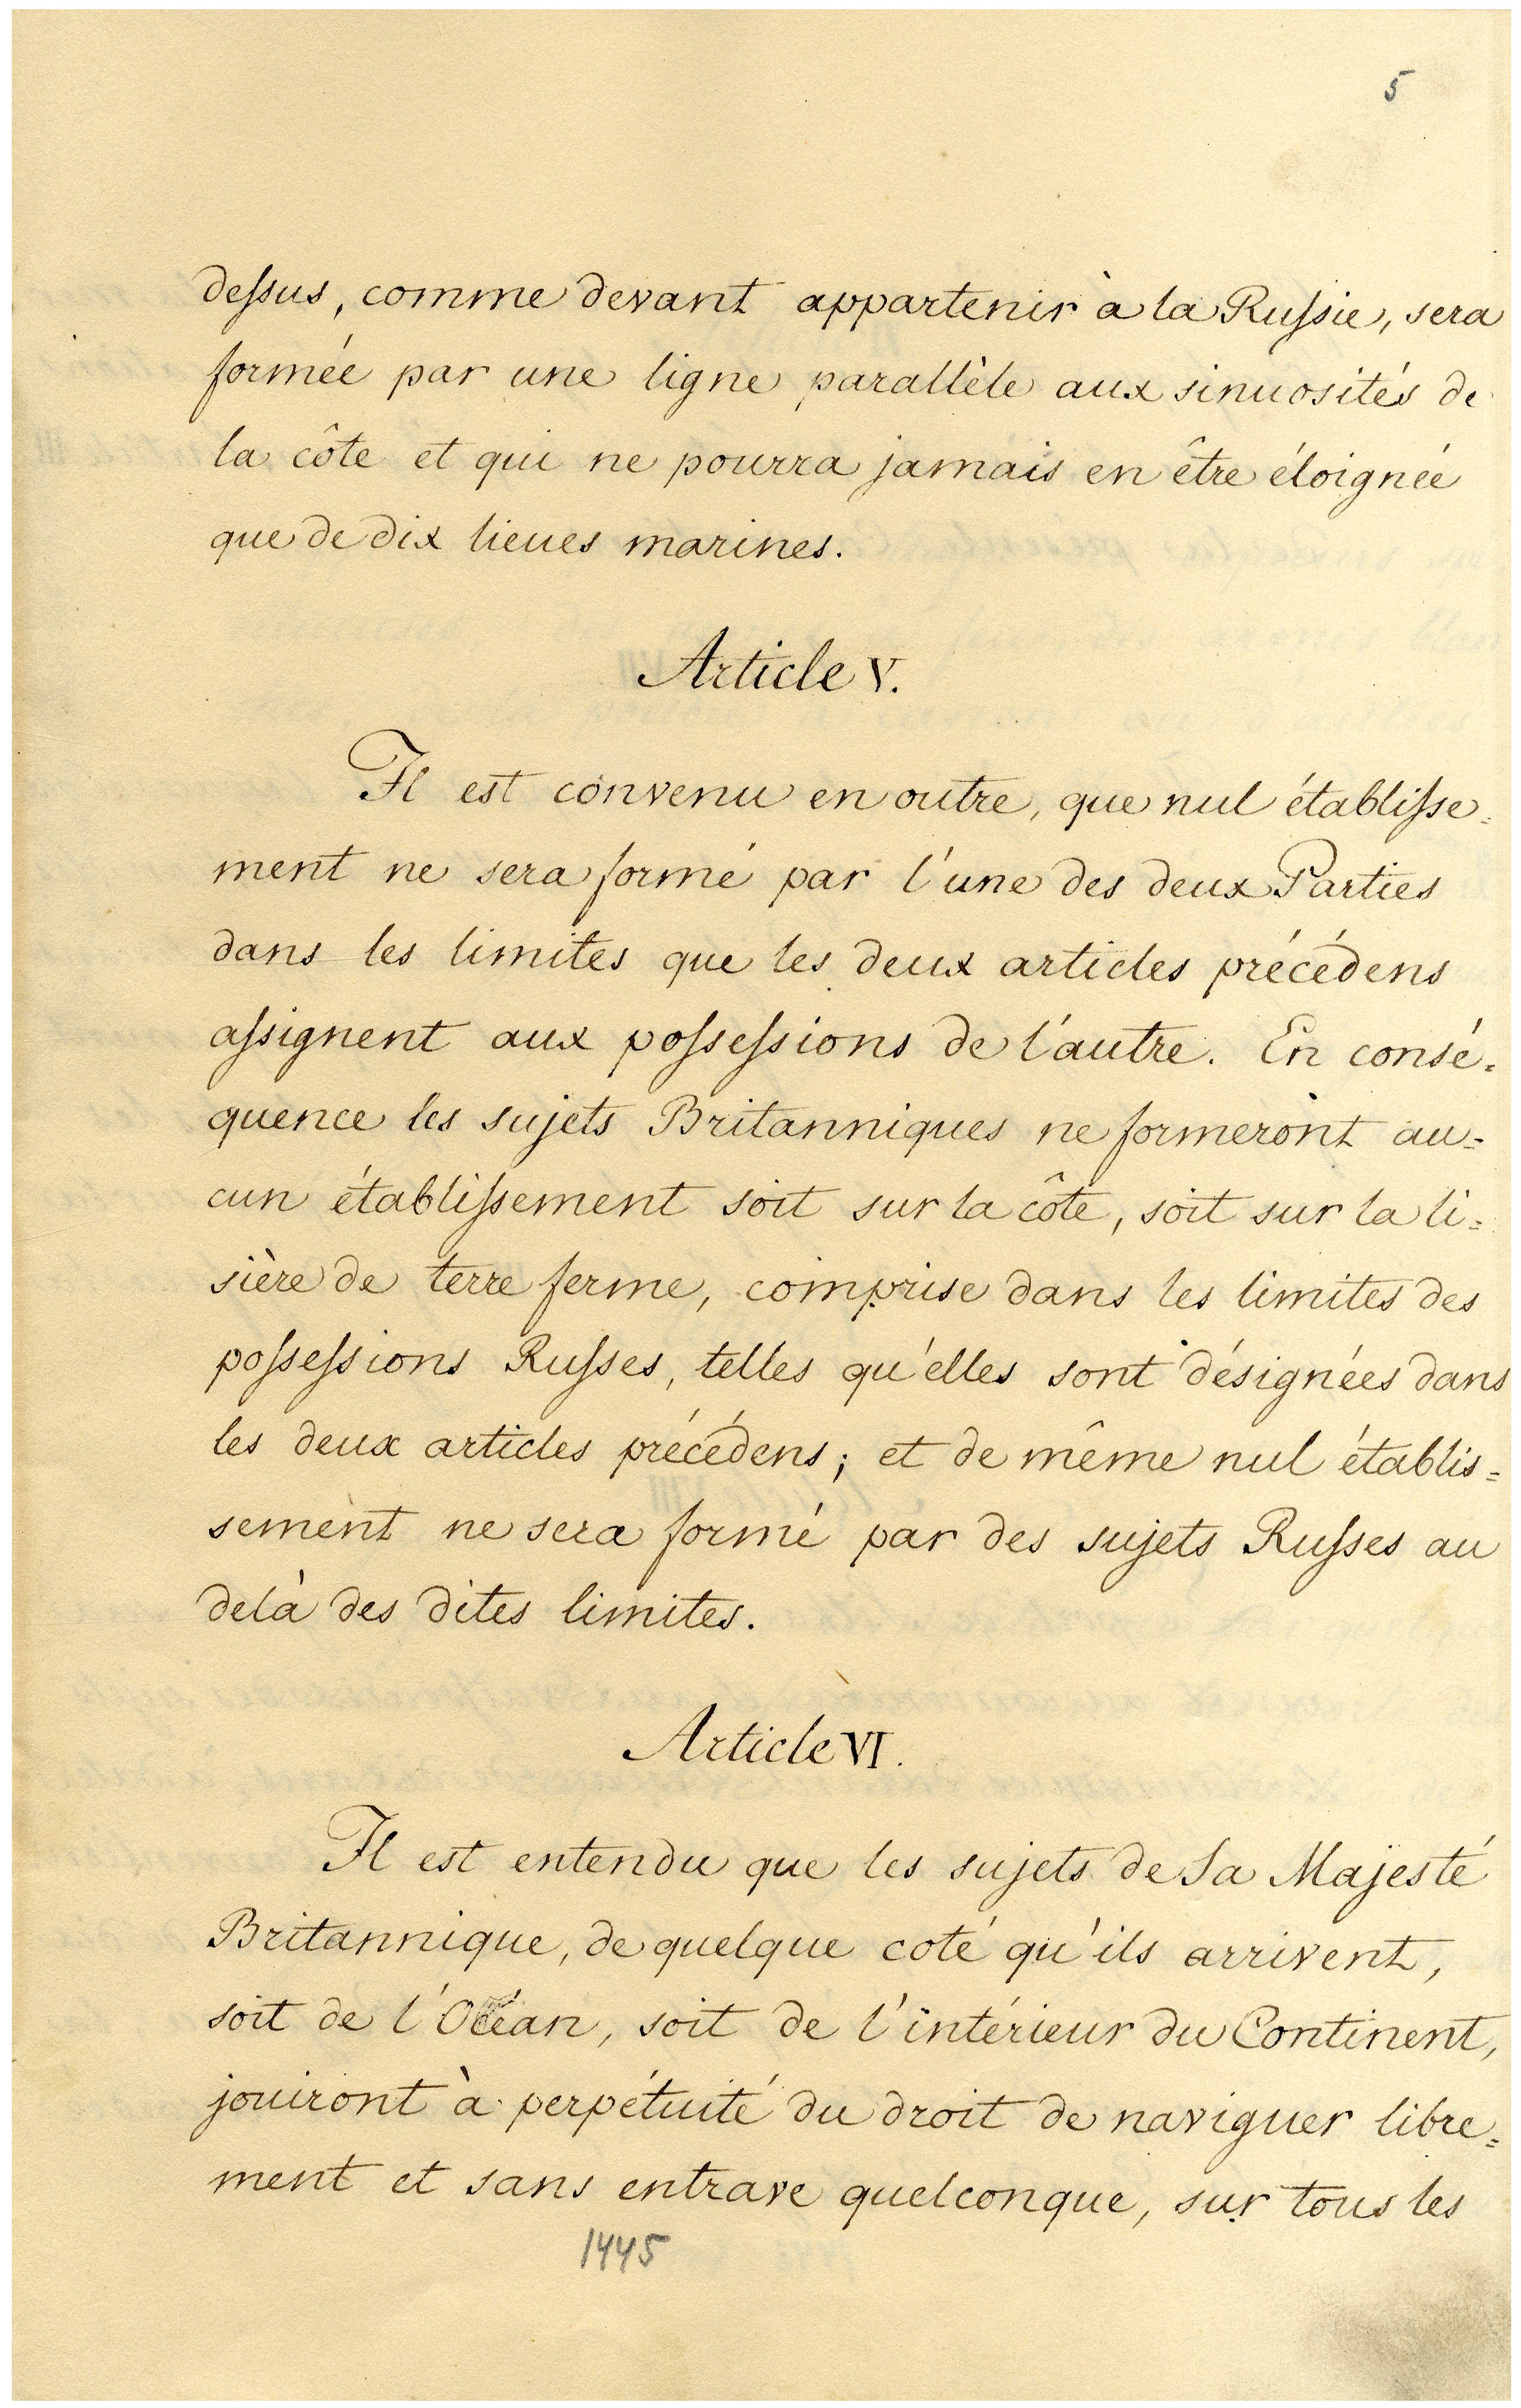 5
dessus, comme devant appartenir à la Russie, sera
formée par une ligne parallèle aux sinuosités de
la côte et qui ne pourra jamais en être éloignée
que de dix lieues marines.
Article V.
Il est convenu en outre, que nul établisse=
ment ne sera formé par l'une des deux Parties
dans les limites que les deux articles précédens
assignent aux possessions de l'autre. En consé=
quence les sujets Britanniques ne formeront au=
cun établissement soit sur la côte, soit sur la li=
sière de terre ferme, comprise dans les limites des
possessions Russes, telles qu'elles sont désignées dans
les deux articles précédens; et de même nul établis=
sement ne sera formé par des sujets Russes au
delà des dites limites.
Article VI.
Il est entendu que les sujets de Sa Majesté
Britannique, de quelque coté qu'ils arrivent,
soit de l'Océan, soit de l'intérieur du Continent,
jouiront à perpétuité du droit de naviguer libre=
ment et sans entrave quelconque, sur tous les
1445